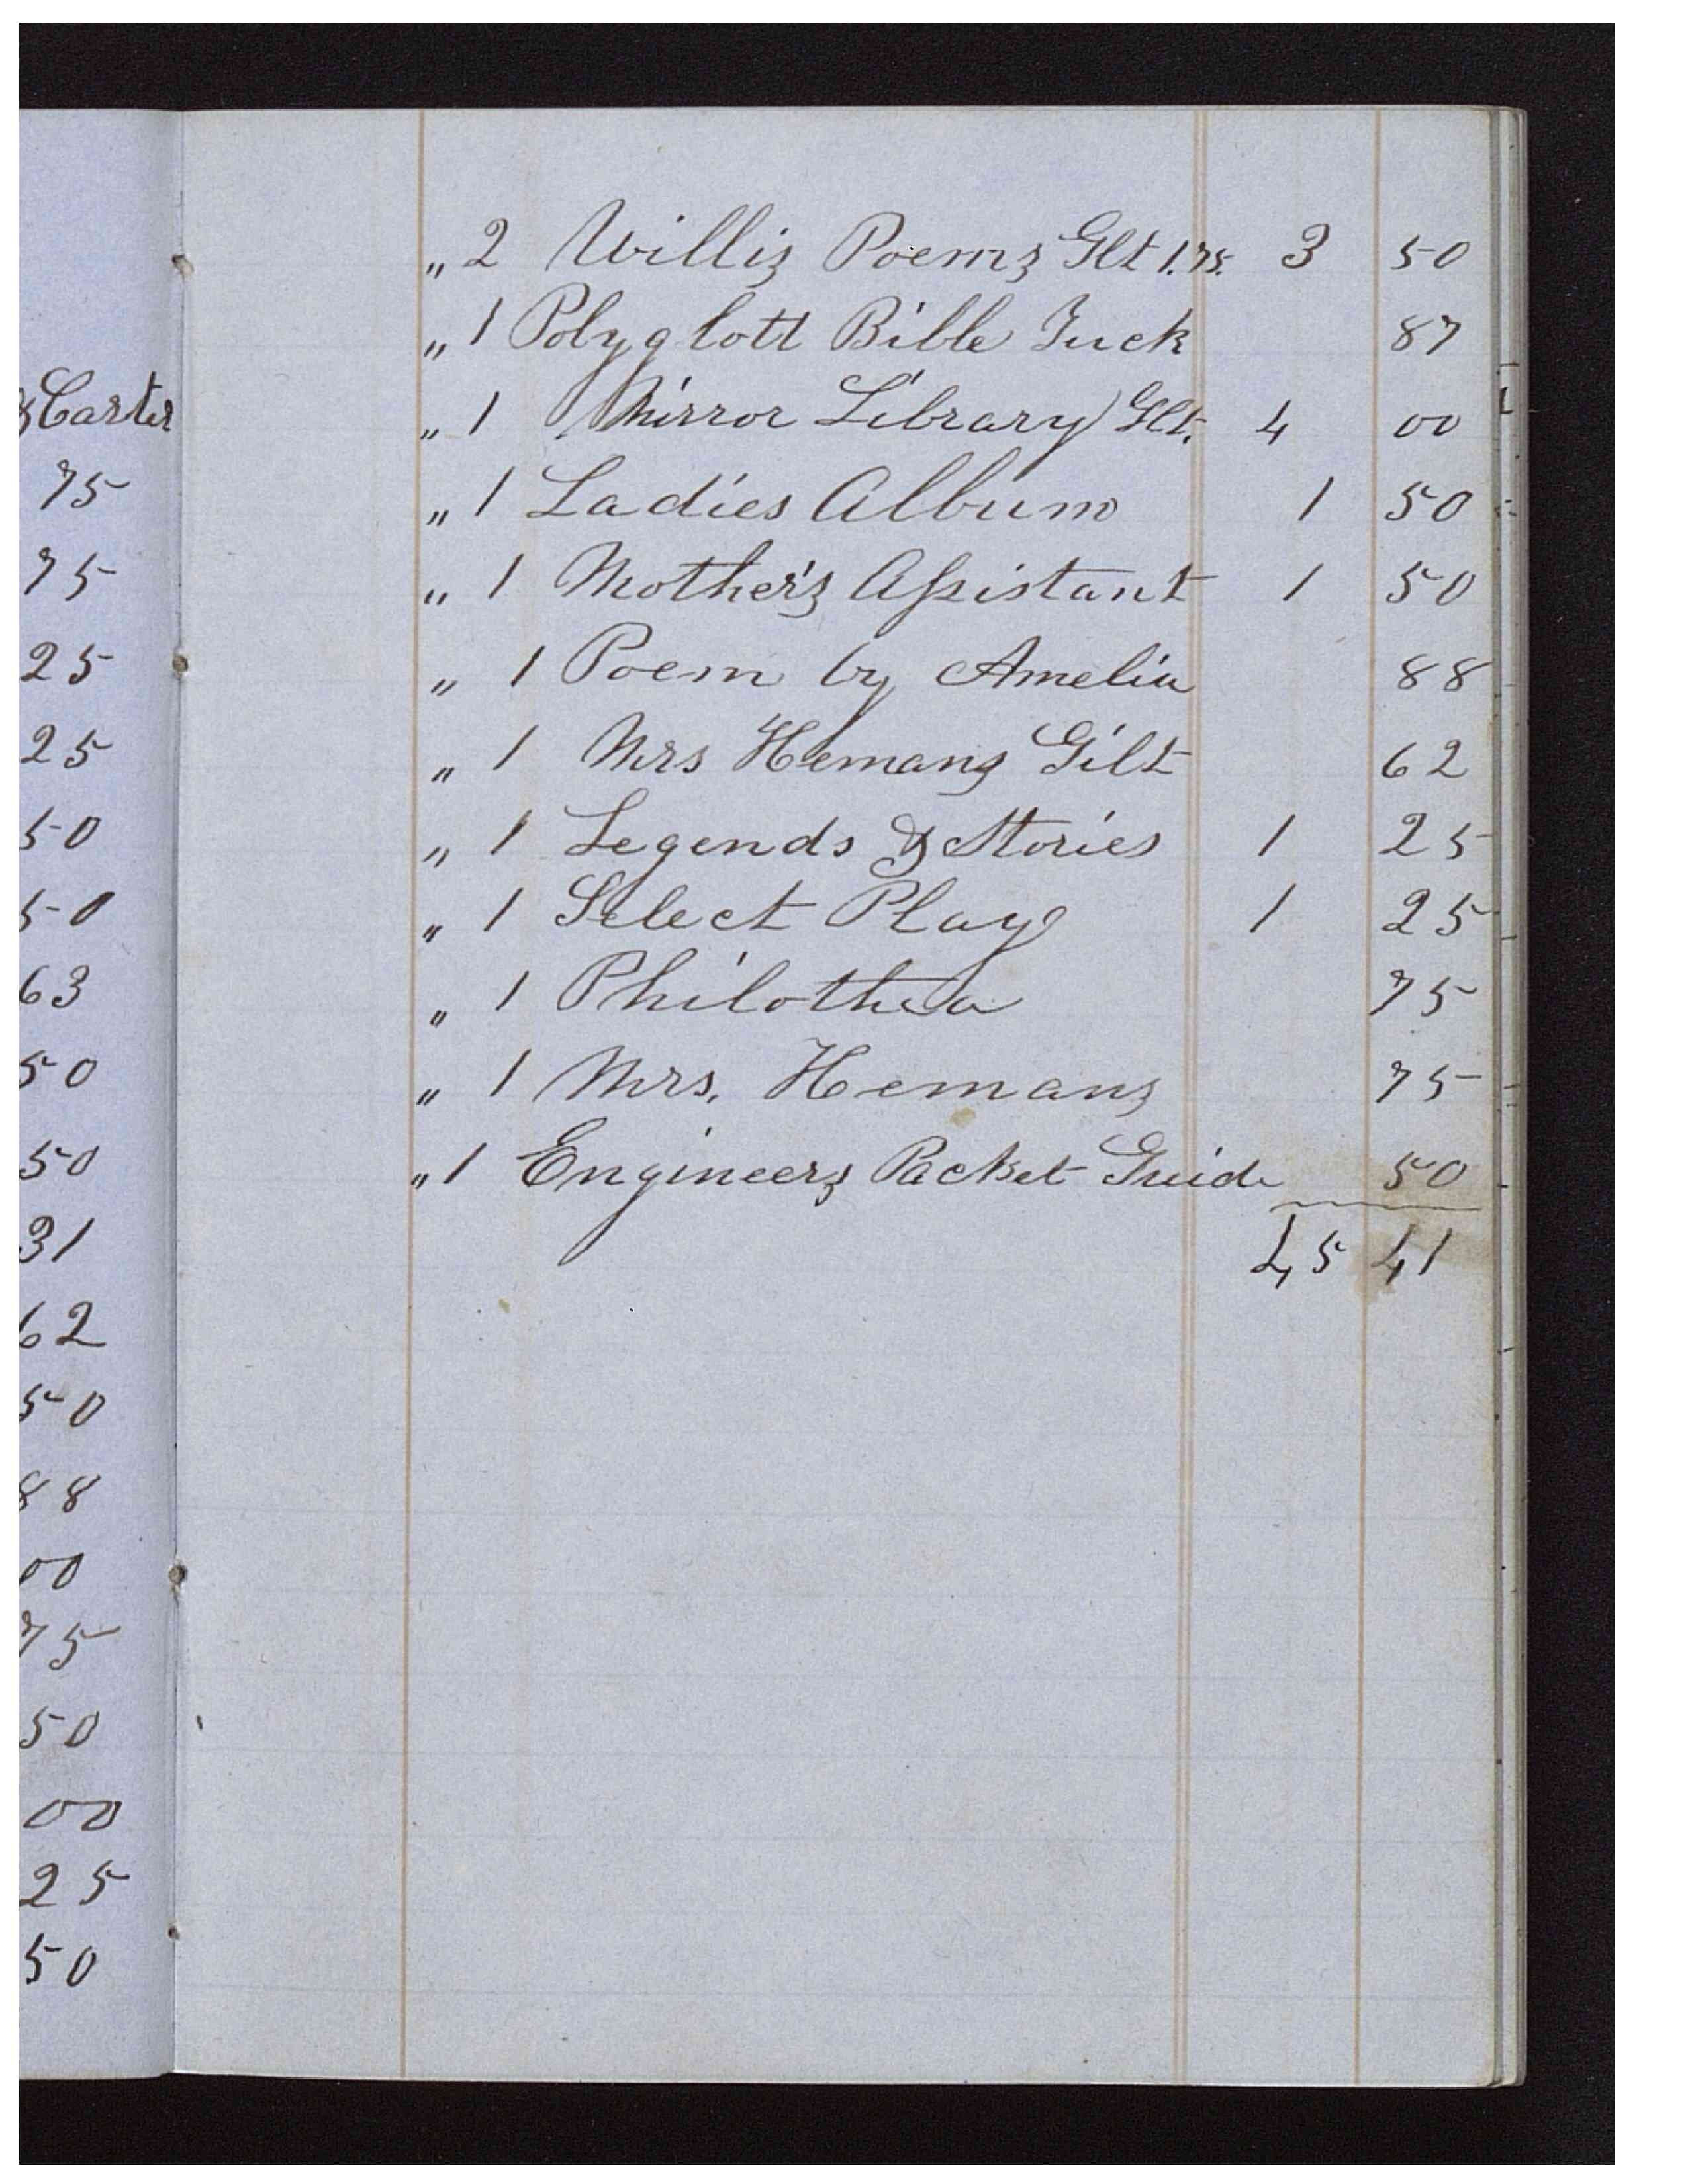 & Carter
75
75
25
25
50
50
63
50
50
31
62
50
88
00
75
50
00
25
50
„ 2 Willis Poems Glt 1.75. 3 50
„ 1 Polyglott Bible Tuck 87
„ 1 Mirror Library Glt. 4 00
„ 1 Ladies Album 1 50
„ 1 Mother's Assistant 1 50
„ 1 Poem by Amelia 88
„ 1 Mrs Hemans Gilt 62
„ 1 Legends & Stories 1 25
„ 1 Select Plays 1 25
„ 1 Philothea 75
„ 1 Mrs. Hemans 75
„ 1 Engineers Packet Guide 50
45 41